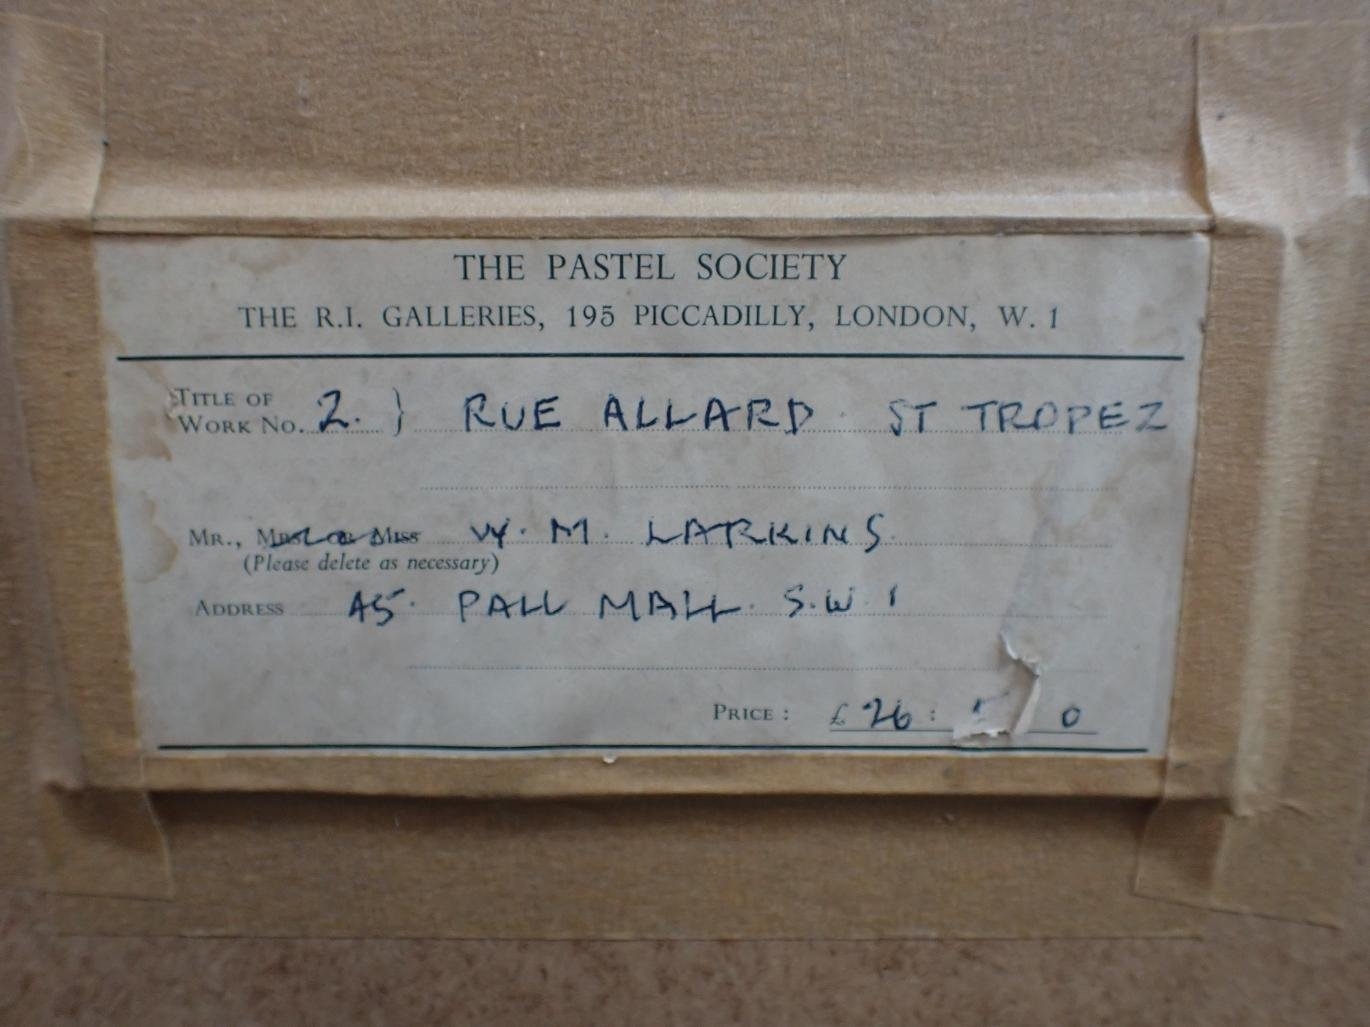 THE PASTEL SOCIETY
THE R.I. GALLERIES, 195 PICCADILLY, LONDON, W. 1
TITLE OF
WORK NO. 2. } RUE ALLARD ST TROPEZ
MR., MRS. OR MISS W. M. LARKINS
(Please delete as necessary)
ADDRESS 45. PALL MALL. S.W 1
PRICE : £ 26 : 5 0